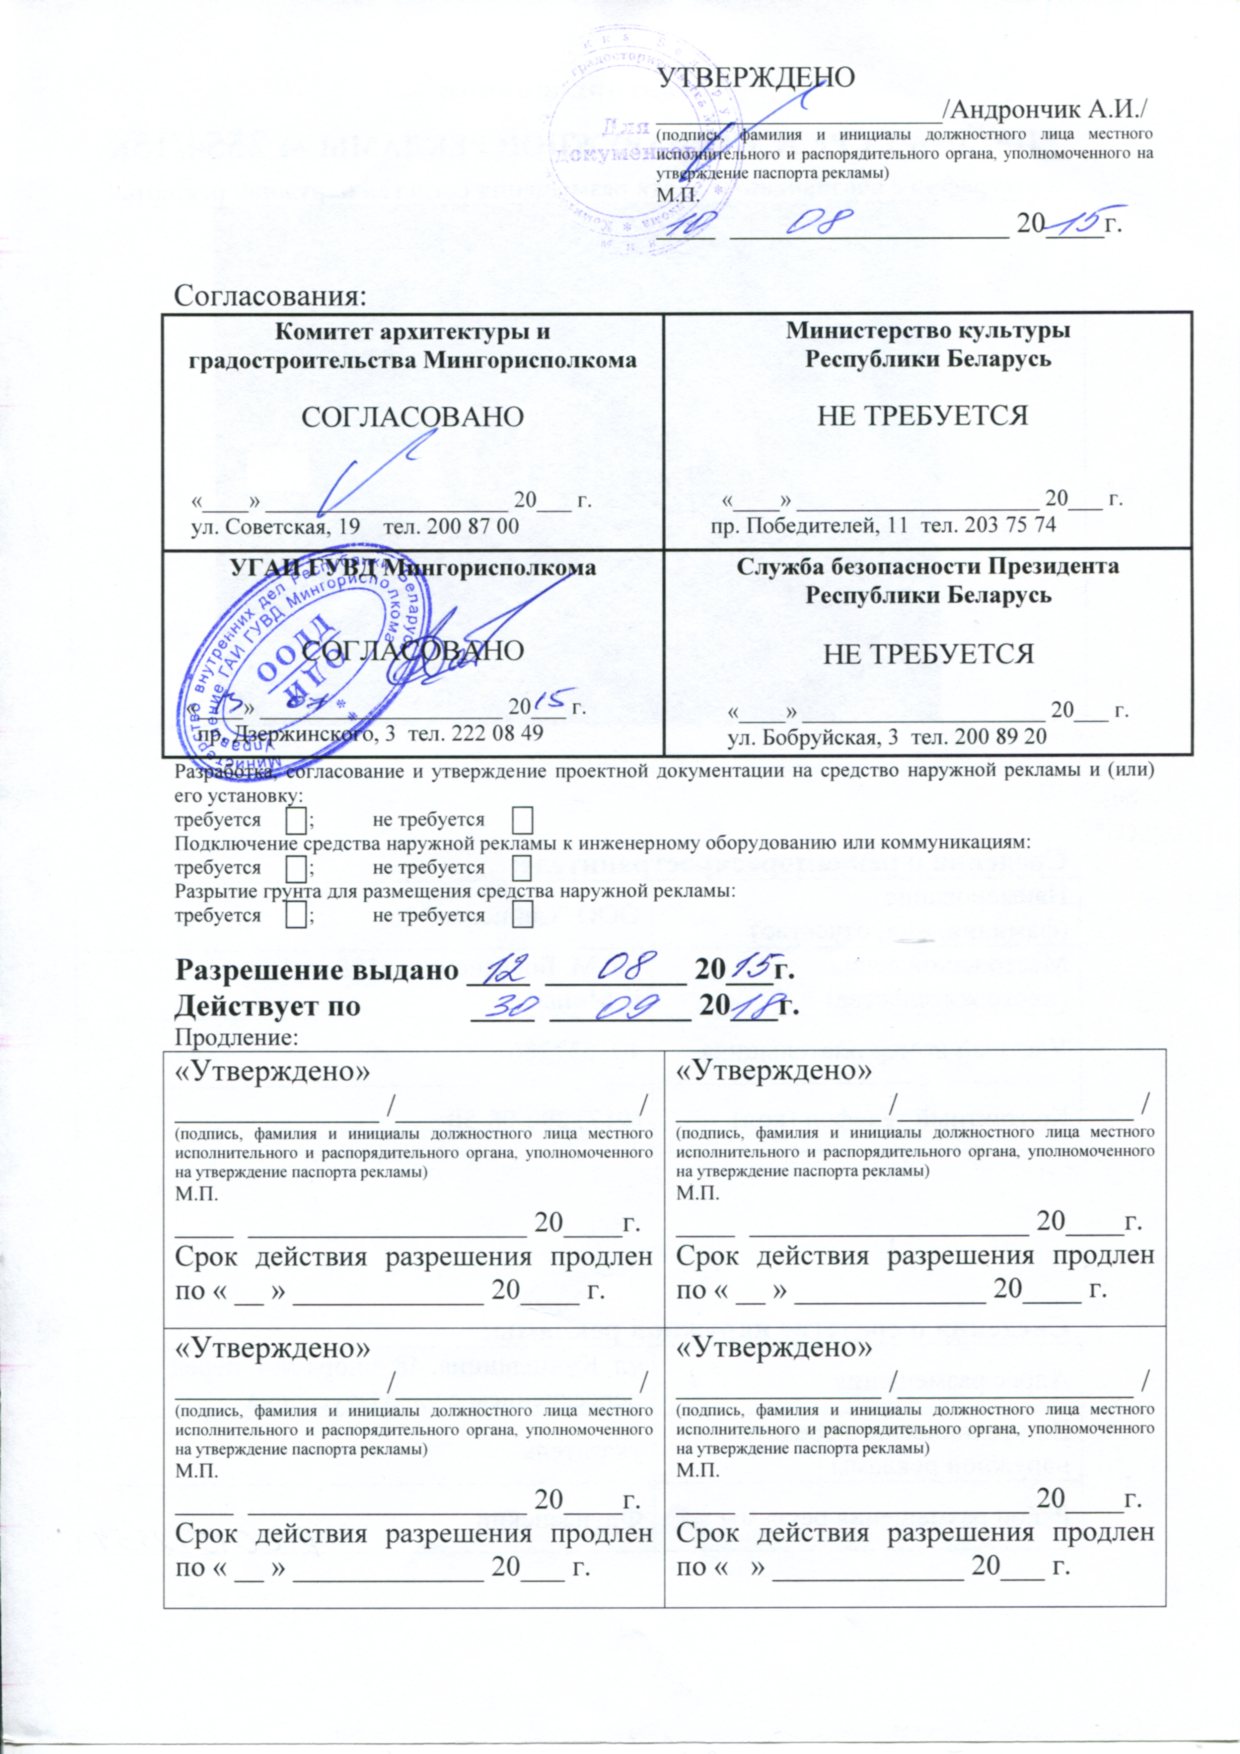 УТВЕРЖДЕНО
____________________/Андрончик А.И./
(подпись, фамилия и инициалы должностного лица местного
исполнительного и распорядительного органа, уполномоченного на
утверждение паспорта рекламы)
М.П.
10 08 2015г.
Для
документов
Согласования:
Комитет архитектуры и
градостроительства Мингорисполкома
СОГЛАСОВАНО
«____» ____________________ 20___ г.
ул. Советская, 19 тел. 200 87 00
Министерство культуры
Республики Беларусь
НЕ ТРЕБУЕТСЯ
«____» ____________________ 20___ г.
пр. Победителей, 11 тел. 203 75 74
УГАИ ГУВД Мингорисполкома
СОГЛАСОВАНО
«13» 07 2015 г.
пр. Дзержинского, 3 тел. 222 08 49
Министерство внутренних дел Республики Беларусь
Управление ГАИ ГУВД Мингорисполкома
ООДД
ОДИ
Служба безопасности Президента
Республики Беларусь
НЕ ТРЕБУЕТСЯ
«____» ____________________ 20___ г.
ул. Бобруйская, 3 тел. 200 89 20
Разработка, согласование и утверждение проектной документации на средство наружной рекламы и (или)
его установку:
требуется ; не требуется
Подключение средства наружной рекламы к инженерному оборудованию или коммуникациям:
требуется ; не требуется
Разрытие грунта для размещения средства наружной рекламы:
требуется ; не требуется
Разрешение выдано 12 08 2015г.
Действует по 30 09 2018г.
Продление:
«Утверждено»
______________ /________________ /
(подпись, фамилия и инициалы должностного лица местного
исполнительного и распорядительного органа, уполномоченного
на утверждение паспорта рекламы)
М.П.
____ ___________________ 20____г.
Срок действия разрешения продлен
по « __ » _____________ 20____ г.
«Утверждено»
______________ /________________ /
(подпись, фамилия и инициалы должностного лица местного
исполнительного и распорядительного органа, уполномоченного
на утверждение паспорта рекламы)
М.П.
____ ___________________ 20____г.
Срок действия разрешения продлен
по « __ » _____________ 20____ г.
«Утверждено»
______________ /________________ /
(подпись, фамилия и инициалы должностного лица местного
исполнительного и распорядительного органа, уполномоченного
на утверждение паспорта рекламы)
М.П.
____ ___________________ 20____г.
Срок действия разрешения продлен
по « __ » _____________ 20___ г.
«Утверждено»
______________ /________________ /
(подпись, фамилия и инициалы должностного лица местного
исполнительного и распорядительного органа, уполномоченного
на утверждение паспорта рекламы)
М.П.
____ ___________________ 20____г.
Срок действия разрешения продлен
по « » _____________ 20___ г.